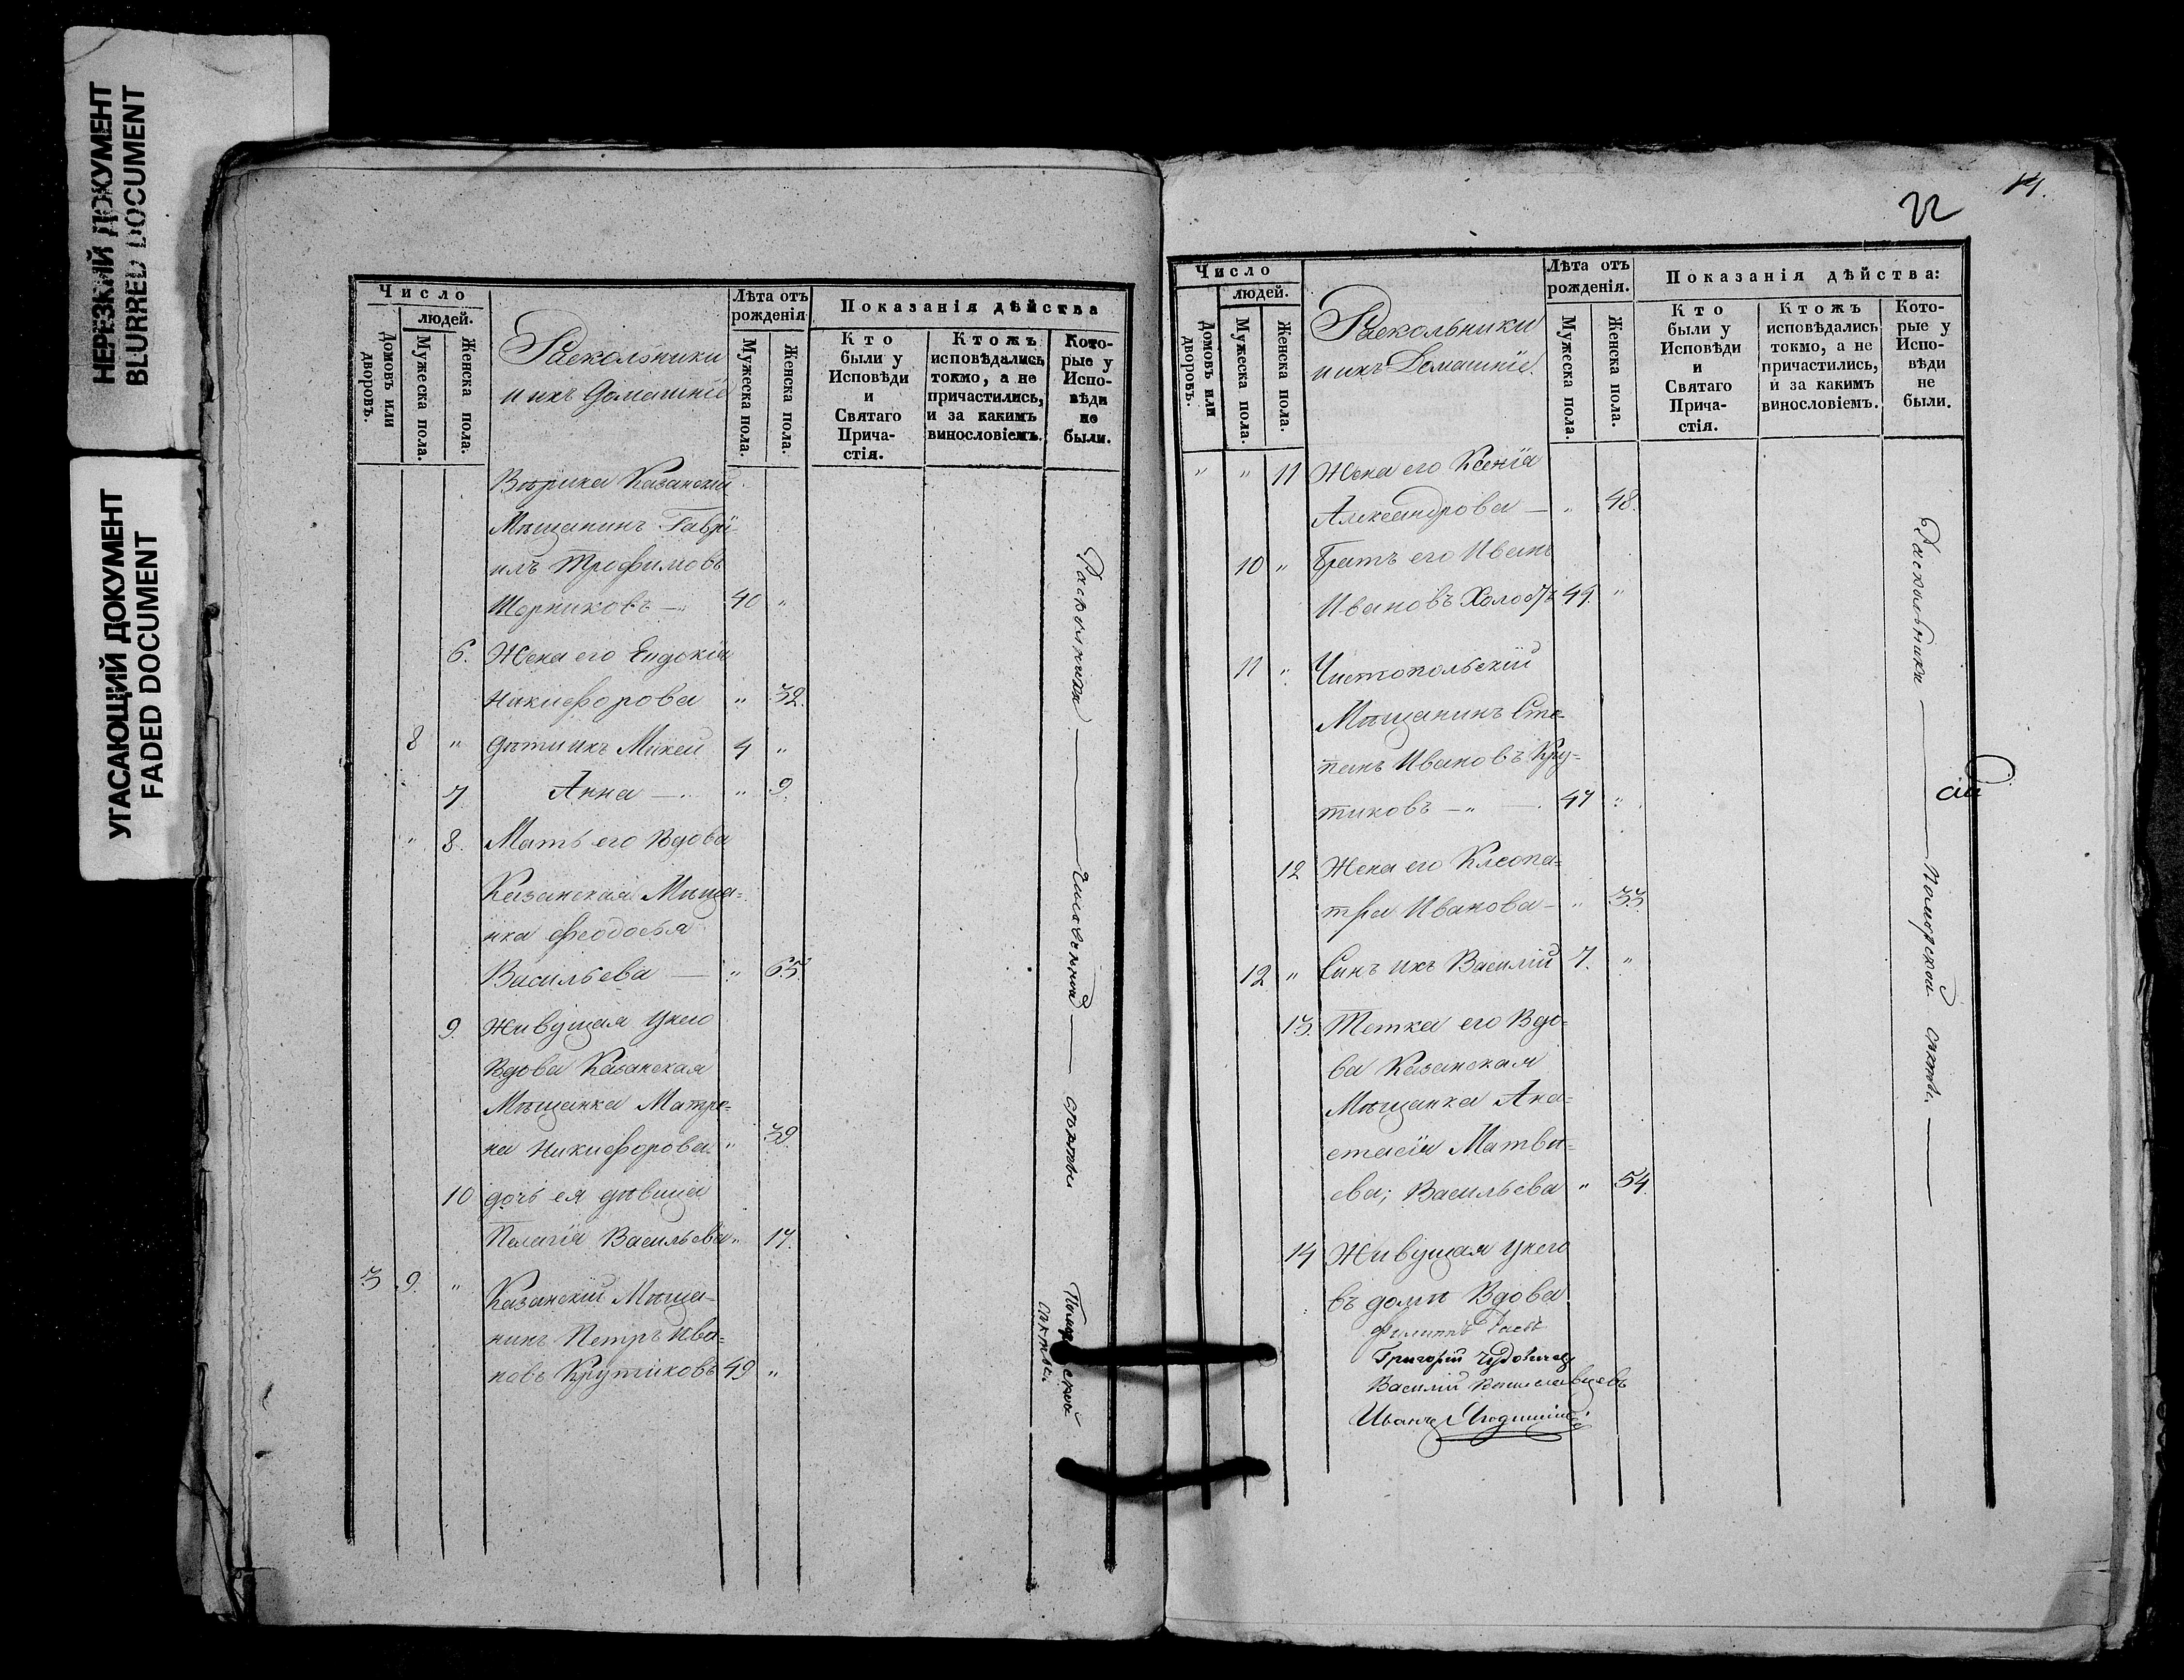 НЕРЕЗКИЙ ДОКУМЕНТ
BLURRED DOCUMENT
УГАСАЮЩИЙ ДОКУМЕНТ
FADED DOCUMENT
Число
людей.
Домовъ или дворовъ.
Мужеска пола.
Женска пола.
Раскольники
и ихъ домашніе
Лѣта отъ
рожденія
Мужеска пола.
Женска пола.
Показанія дѣйства
Кто
были у
Исповѣди
и
Святаго
Прича-
стія.
Ктожъ
исповѣдались
токмо, а не
причастились,
и за какимъ
винословіемъ.
Кото-
рые у
Испо-
вѣди
не
были.
Казанскій
Мѣщанинъ Гаврі-
илъ Трофимовъ
Шорниковъ — 40 "
6. Жена его Евдокія
Никифорова " 32.
8 " дѣти ихъ Мокей 4 "
7 Анна — " 9.
" 8. Мать его Вдова
Казанская Мѣща-
нка Феодосья
Васильева — " 65.
9. Живущая у него
Вдова Казанская
Мѣщанка Матре-
на Никифорова " 39.
10 дочь ея дѣвица
Пелагія Васильева " 17.
3 9. " Казанскій Мѣща-
нинъ Петръ Ива-
новъ Крутиковъ 49 "
Раскольники — — секты
Поморской
секты.
22
14.
Число
людей.
Домовъ или дворовъ.
Мужеска пола.
Женска пола.
Раскольники
и ихъ Домашніе
Лѣта отъ
рожденія.
Мужеска пола.
Женска пола.
Показанія дѣйства:
Кто
были у
Исповѣди
и
Святаго
Прича-
стія.
Ктожъ
исповѣдались
токмо, а не
причастились,
и за какимъ
винословіемъ.
Кото-
рые у
Испо-
вѣди
не
были.
" " 11 Жена его Ксенія
Александрова — " 48.
10 " Братъ его Иванъ
Ивановъ Холостъ 44. "
11 " Чистопольскій
Мѣщанинъ Сте-
панъ Ивановъ Кру-
тиковъ — " — 47 "
12 Жена его Клеопа-
тра Иванова — " 33.
12 " Сынъ ихъ Василій 7. "
13. Тетка его Вдо-
ва Казанская
Мѣщанка Ана-
стасія Матвѣ-
ева; Васильева " 54.
14 Живущая у него
въ домѣ Вдова
Филиппъ
Григорій
Василій Вышеславцевъ
Иванъ
Раскольники — Поморской секты. —